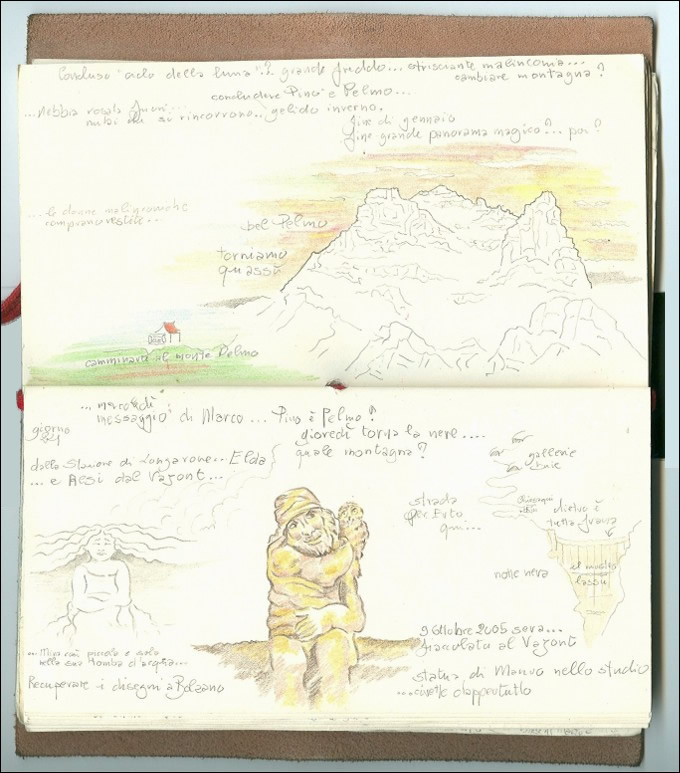 Concluso "ciclo della luna".. grande freddo... strisciante malinconia...
cambiare montagna?
concludere Pino e Pelmo...
...Nebbia rosata fuori...
nubi che si rincorrono.. gelido inverno.
fine di gennaio
fine grande panorama magico?... poi?
...le donne
comprano vestiti...
bel Pelmo
torniamo
quassù
camminare il monte Pelmo
... mercoledì
messaggio di Marco... Pino è Pelmo?
giorno
giovedì torna la neve....
quale montagna?
dalla di Longarone.. Elda
... e Resi dal Vajont...
gallerie
buie
strada
per Erto
qui...
dietro è
tutta frana
notte nera
il mostro
lassù
9 Ottobre 2005 sera...
fiaccolata al Vajont
...Mira così piccola e sola
nella sua tomba d'acqua...
statua di Mauro nello studio
Recuperare i disegni a Bolzano
...civette dappertutto